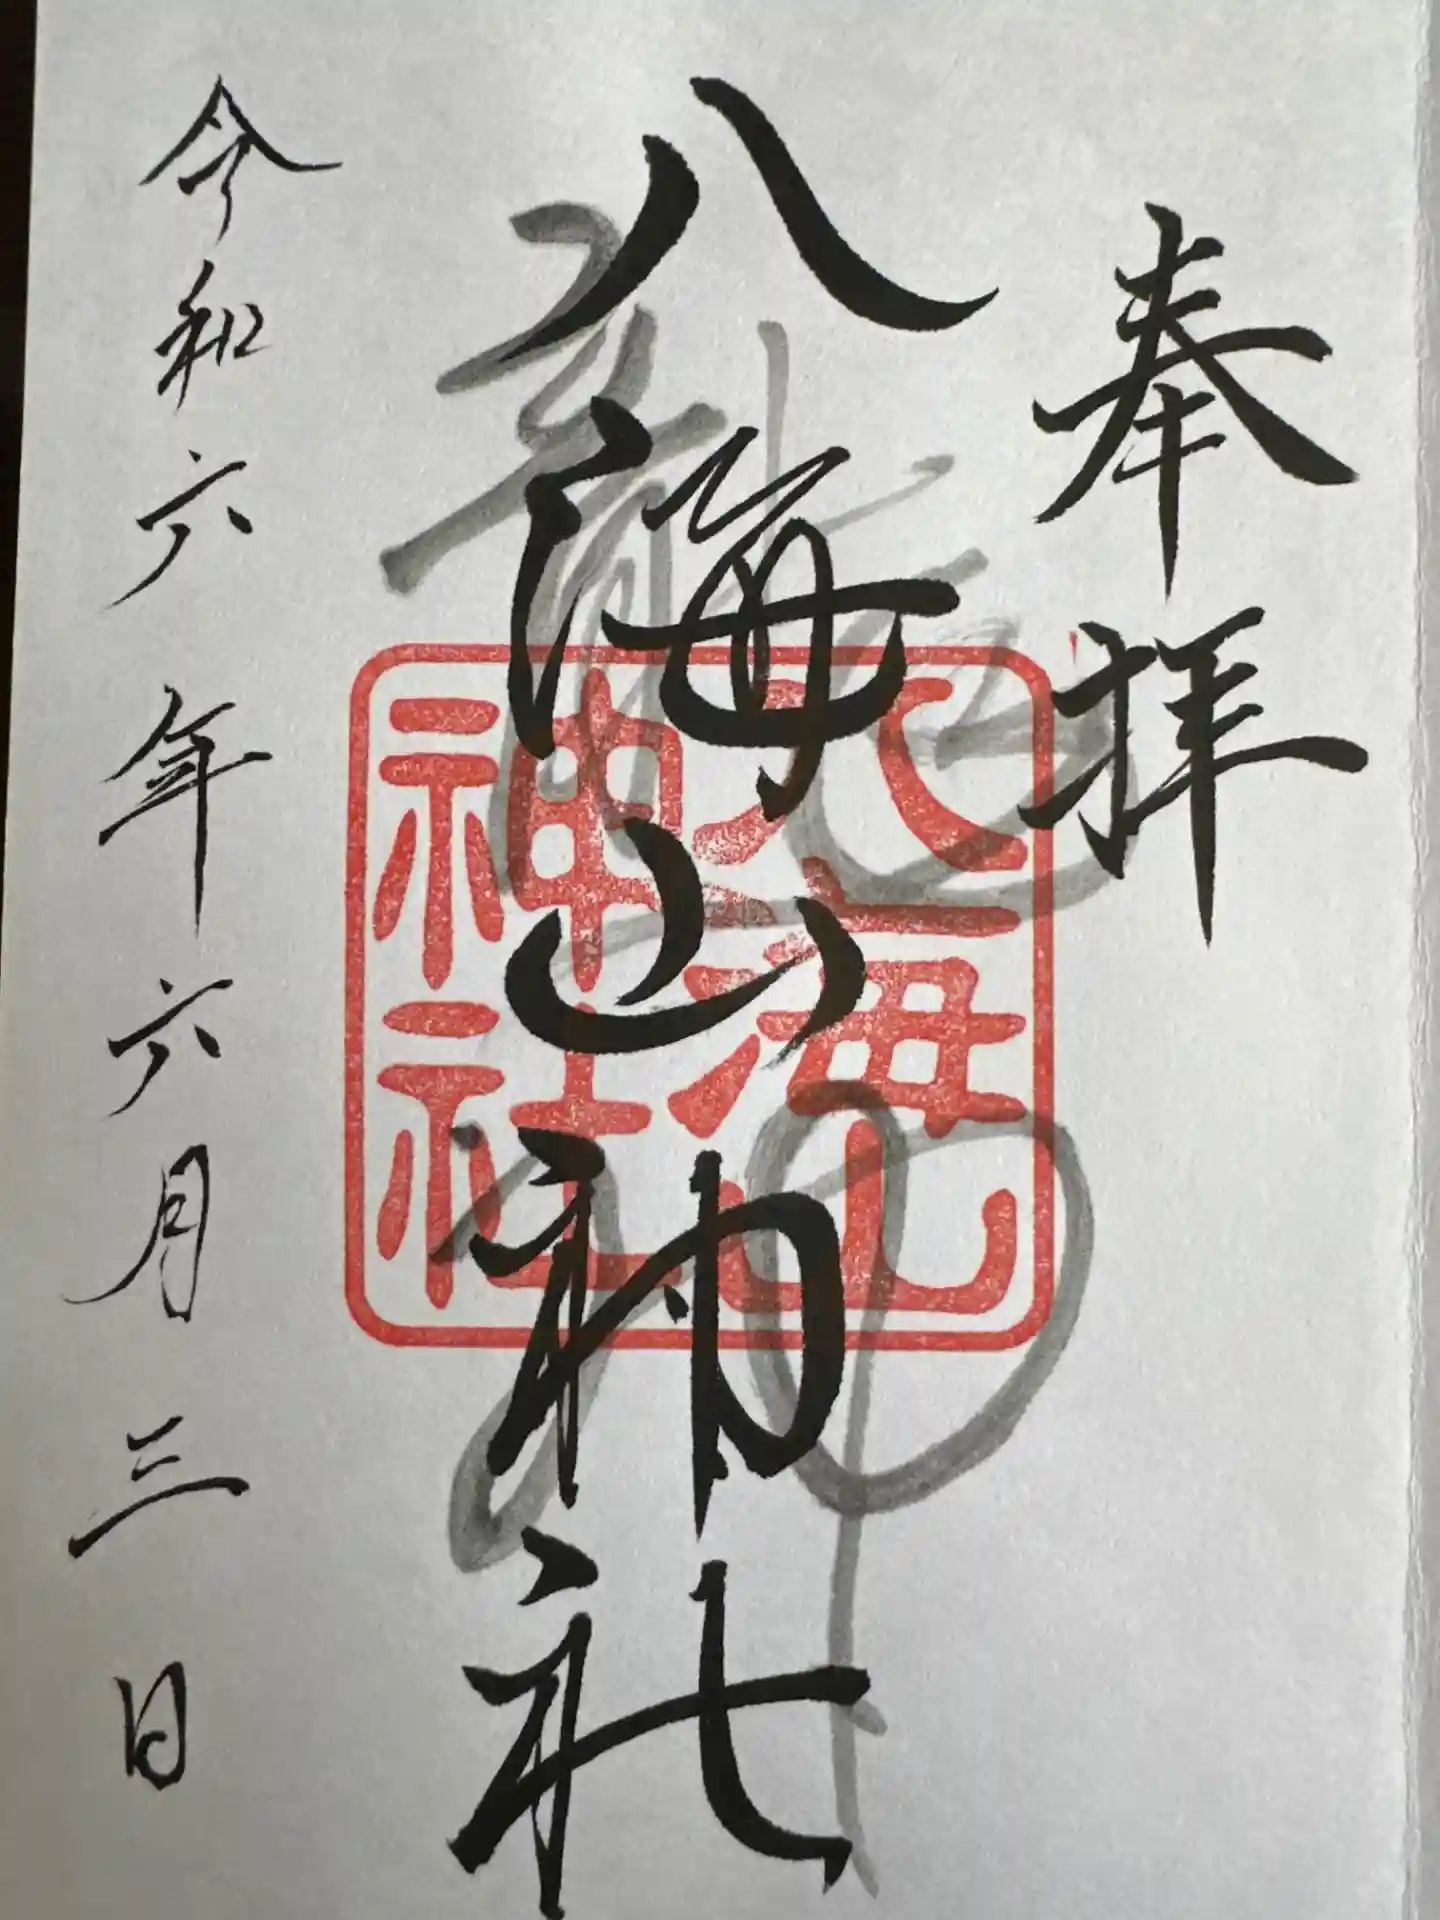 奉拝
八海山神社
八海山
神社
令和六年六月三日